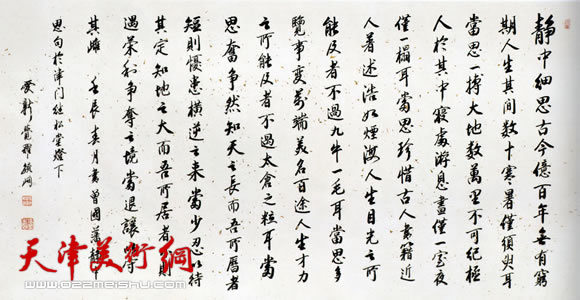 静中细思古今億百年無有窮
期人生其間数十寒暑僅須臾耳
當思一搏大地数萬里不可纪極
人於其中寝處游息晝僅一室夜
僅一榻耳當思珍惜古人書籍近
人著述浩如煙海人生目光之所
能及者不過九牛一毛耳當思多
覽事變萬端美名百途人生才力
之所能及者不過太倉之粒耳當
思奮争然知天之長而吾所曆者
短則憂患横逆之来當少忍以待
其定知地之大而吾所居者則
遇荣利争奪之境當退讓守
其雌 壬辰春月書曾國藩静中
思句於津门继松堂燈下
爱新觉羅毓
天津美術網
www.ozameishu.com